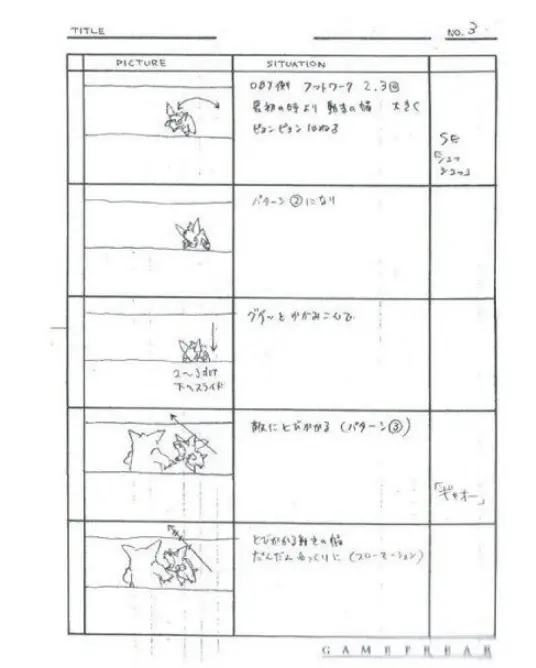 TITLE
NO. 3
PICTURE
SITUATION
OBJ側 フットワーク 2.3回
最初の時より 動きの幅 大きく
ピョンピョン はねる
SE
「シュッ
シュッ」
パターン②になり
グイッと かがみこんで
2〜3dot
下へスライド
敵にとびかかる (パターン③)
「ギャオー」
とびかかる動きの幅
だんだん ゆっくりに (スローモーション)
GAME FREAK